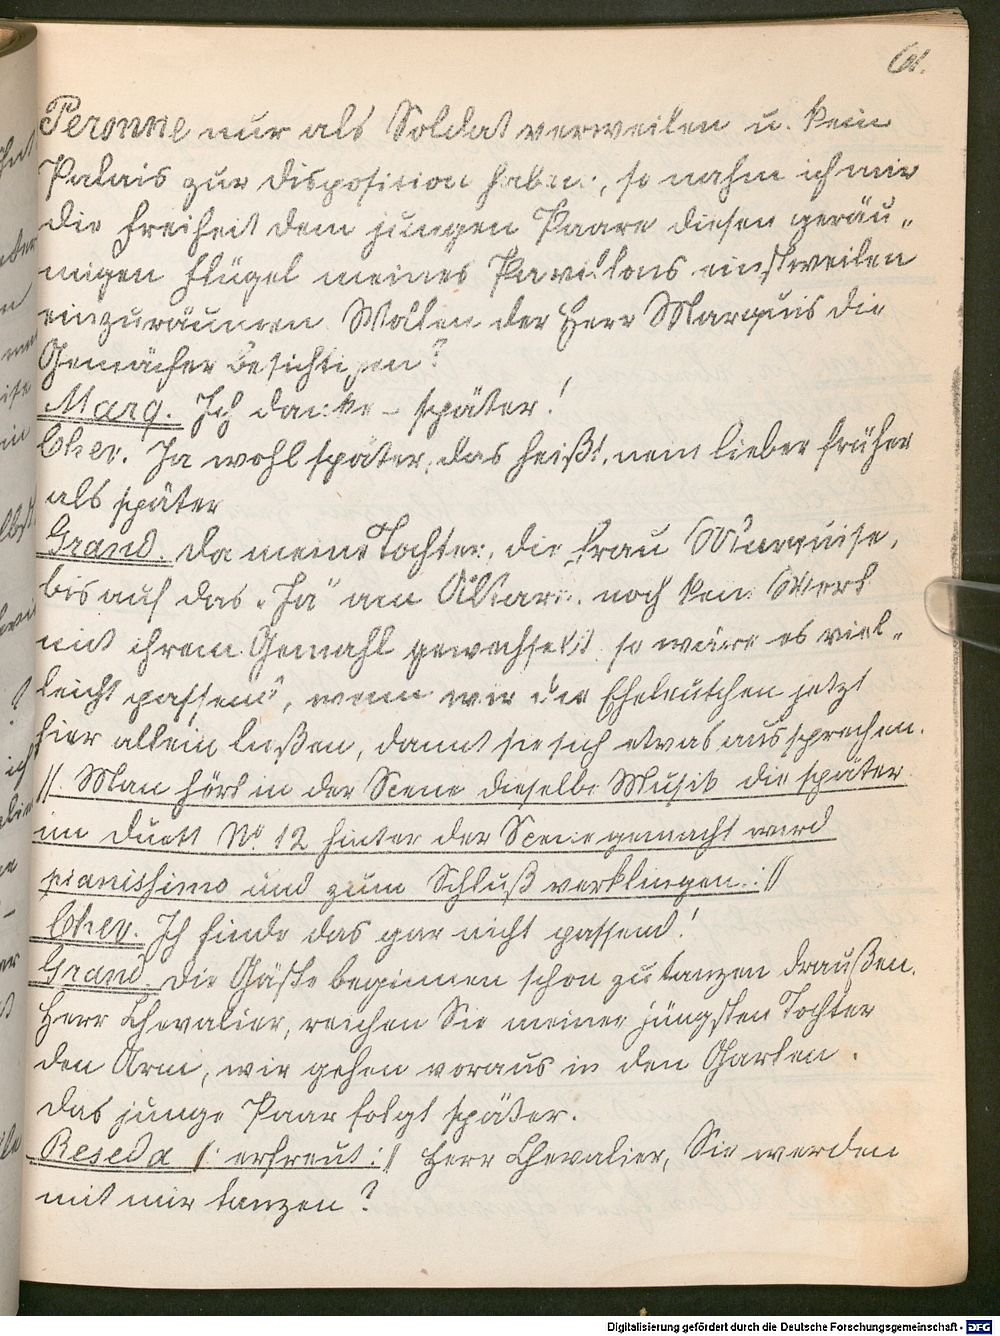 61.
Peronne nur als Soldat verweilen u. kein
Palais zur Disposition haben, so nahm ich mir
die Freiheit dem jungen Paare diesen geräu„
migen Flügel meines Pavillons einstweilen
einzuräumen. Wollen der Herr Marquis die
Gemächer besichtigen?
Marq. Ich danke – später!
Chev. Ja wohl später, das heißt, nein lieber früher
als später
Grand. Da meine Tochter, die Frau Marquise,
bis auf das „Ja" am Altare, noch kein Wort
mit ihrem Gemahl gewechselt so wäre es viel„
leicht passend, wenn wir die Eheleutchen jetzt
hier allein ließen, damit sie sich etwas aussprechen.
//: Man hört in der Scene dieselbe Musik die später
im Duett No 12 hinter der Scene gemacht wird
pianissimo und zum Schluß verklingen. ://
Chev. Ich finde das gar nicht passend!
Grand. Die Gäste beginnen schon zu tanzen draußen.
Herr Chevalier, reichen Sie meiner jüngsten Tochter
den Arm, wir gehen voraus in den Garten.
Das junge Paar folgt später.
Reseda /: erfreut :// Herr Chevalier, Sie werden
mit mir tanzen?
Digitalisierung gefördert durch die Deutsche Forschungsgemeinschaft - DFG